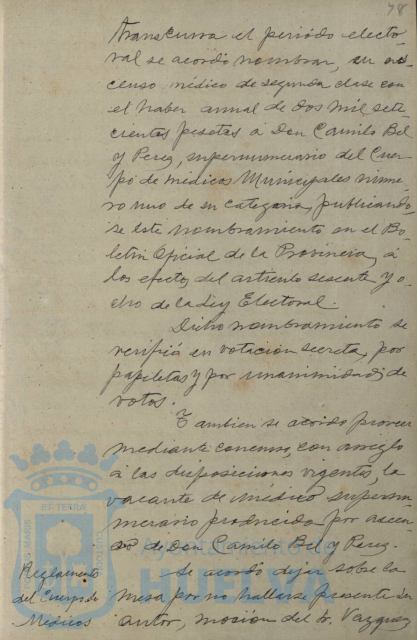 78
transcurra el periódo electo-
ral se acordó nombrar, en as-
censo, médico de segunda clase con
el haber anual de dos mil sete-
cientas pesetas á Don Camilo Bel
y Perez, supernumerario del Cuer-
po de Médicos Municipales núme-
ro uno de su categoria, publicando
se este nombramiento en el Bo-
letin Oficial de la Provincia, á
los efectos del articulo sesenta y o-
cho de la Ley Electoral.
Dicho nombramiento se
verificó en votación secreta, por
papeletas y por unanimidad de
votos.
Tambien se acordó proveer
mediante concurso, con arreglo
á las disposiciones vigentes, la
vacante de Médico supernu-
merario producida por ascen-
so de Don Camilo Bel y Perez.
Reglamento
del Cuerpo de
Médicos
Se acordó dejar sobre la
mesa por no hallarse presente su
autor, moción del Sr. Vazquez
Ayuntamiento de
HUELVA